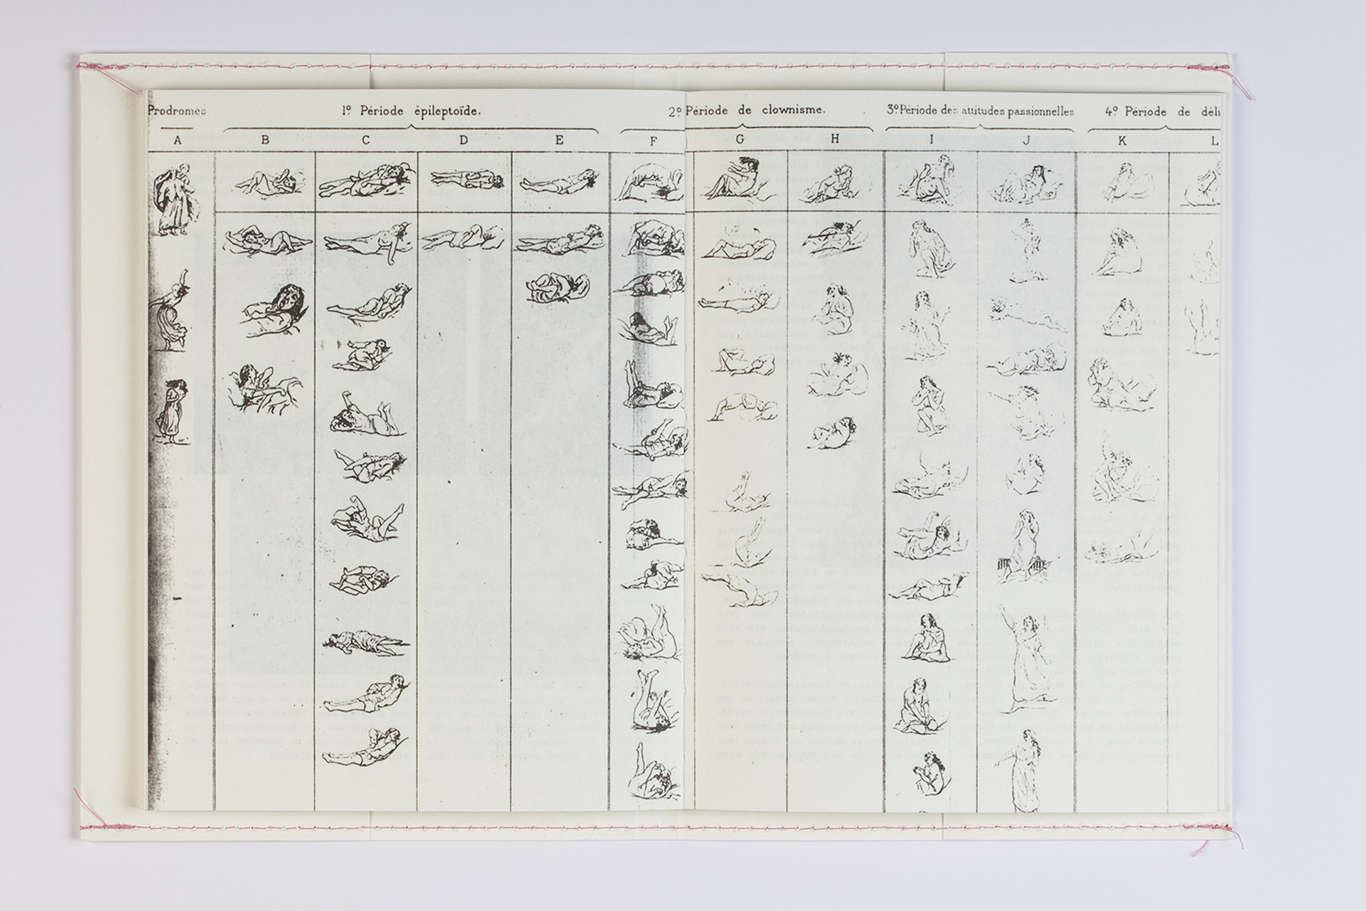 Prodromes 1º Période épileptoïde. 2º Période de clownisme. 3º Période des attitudes passionnelles 4º Période de déli
A B C D E F G H I J K L